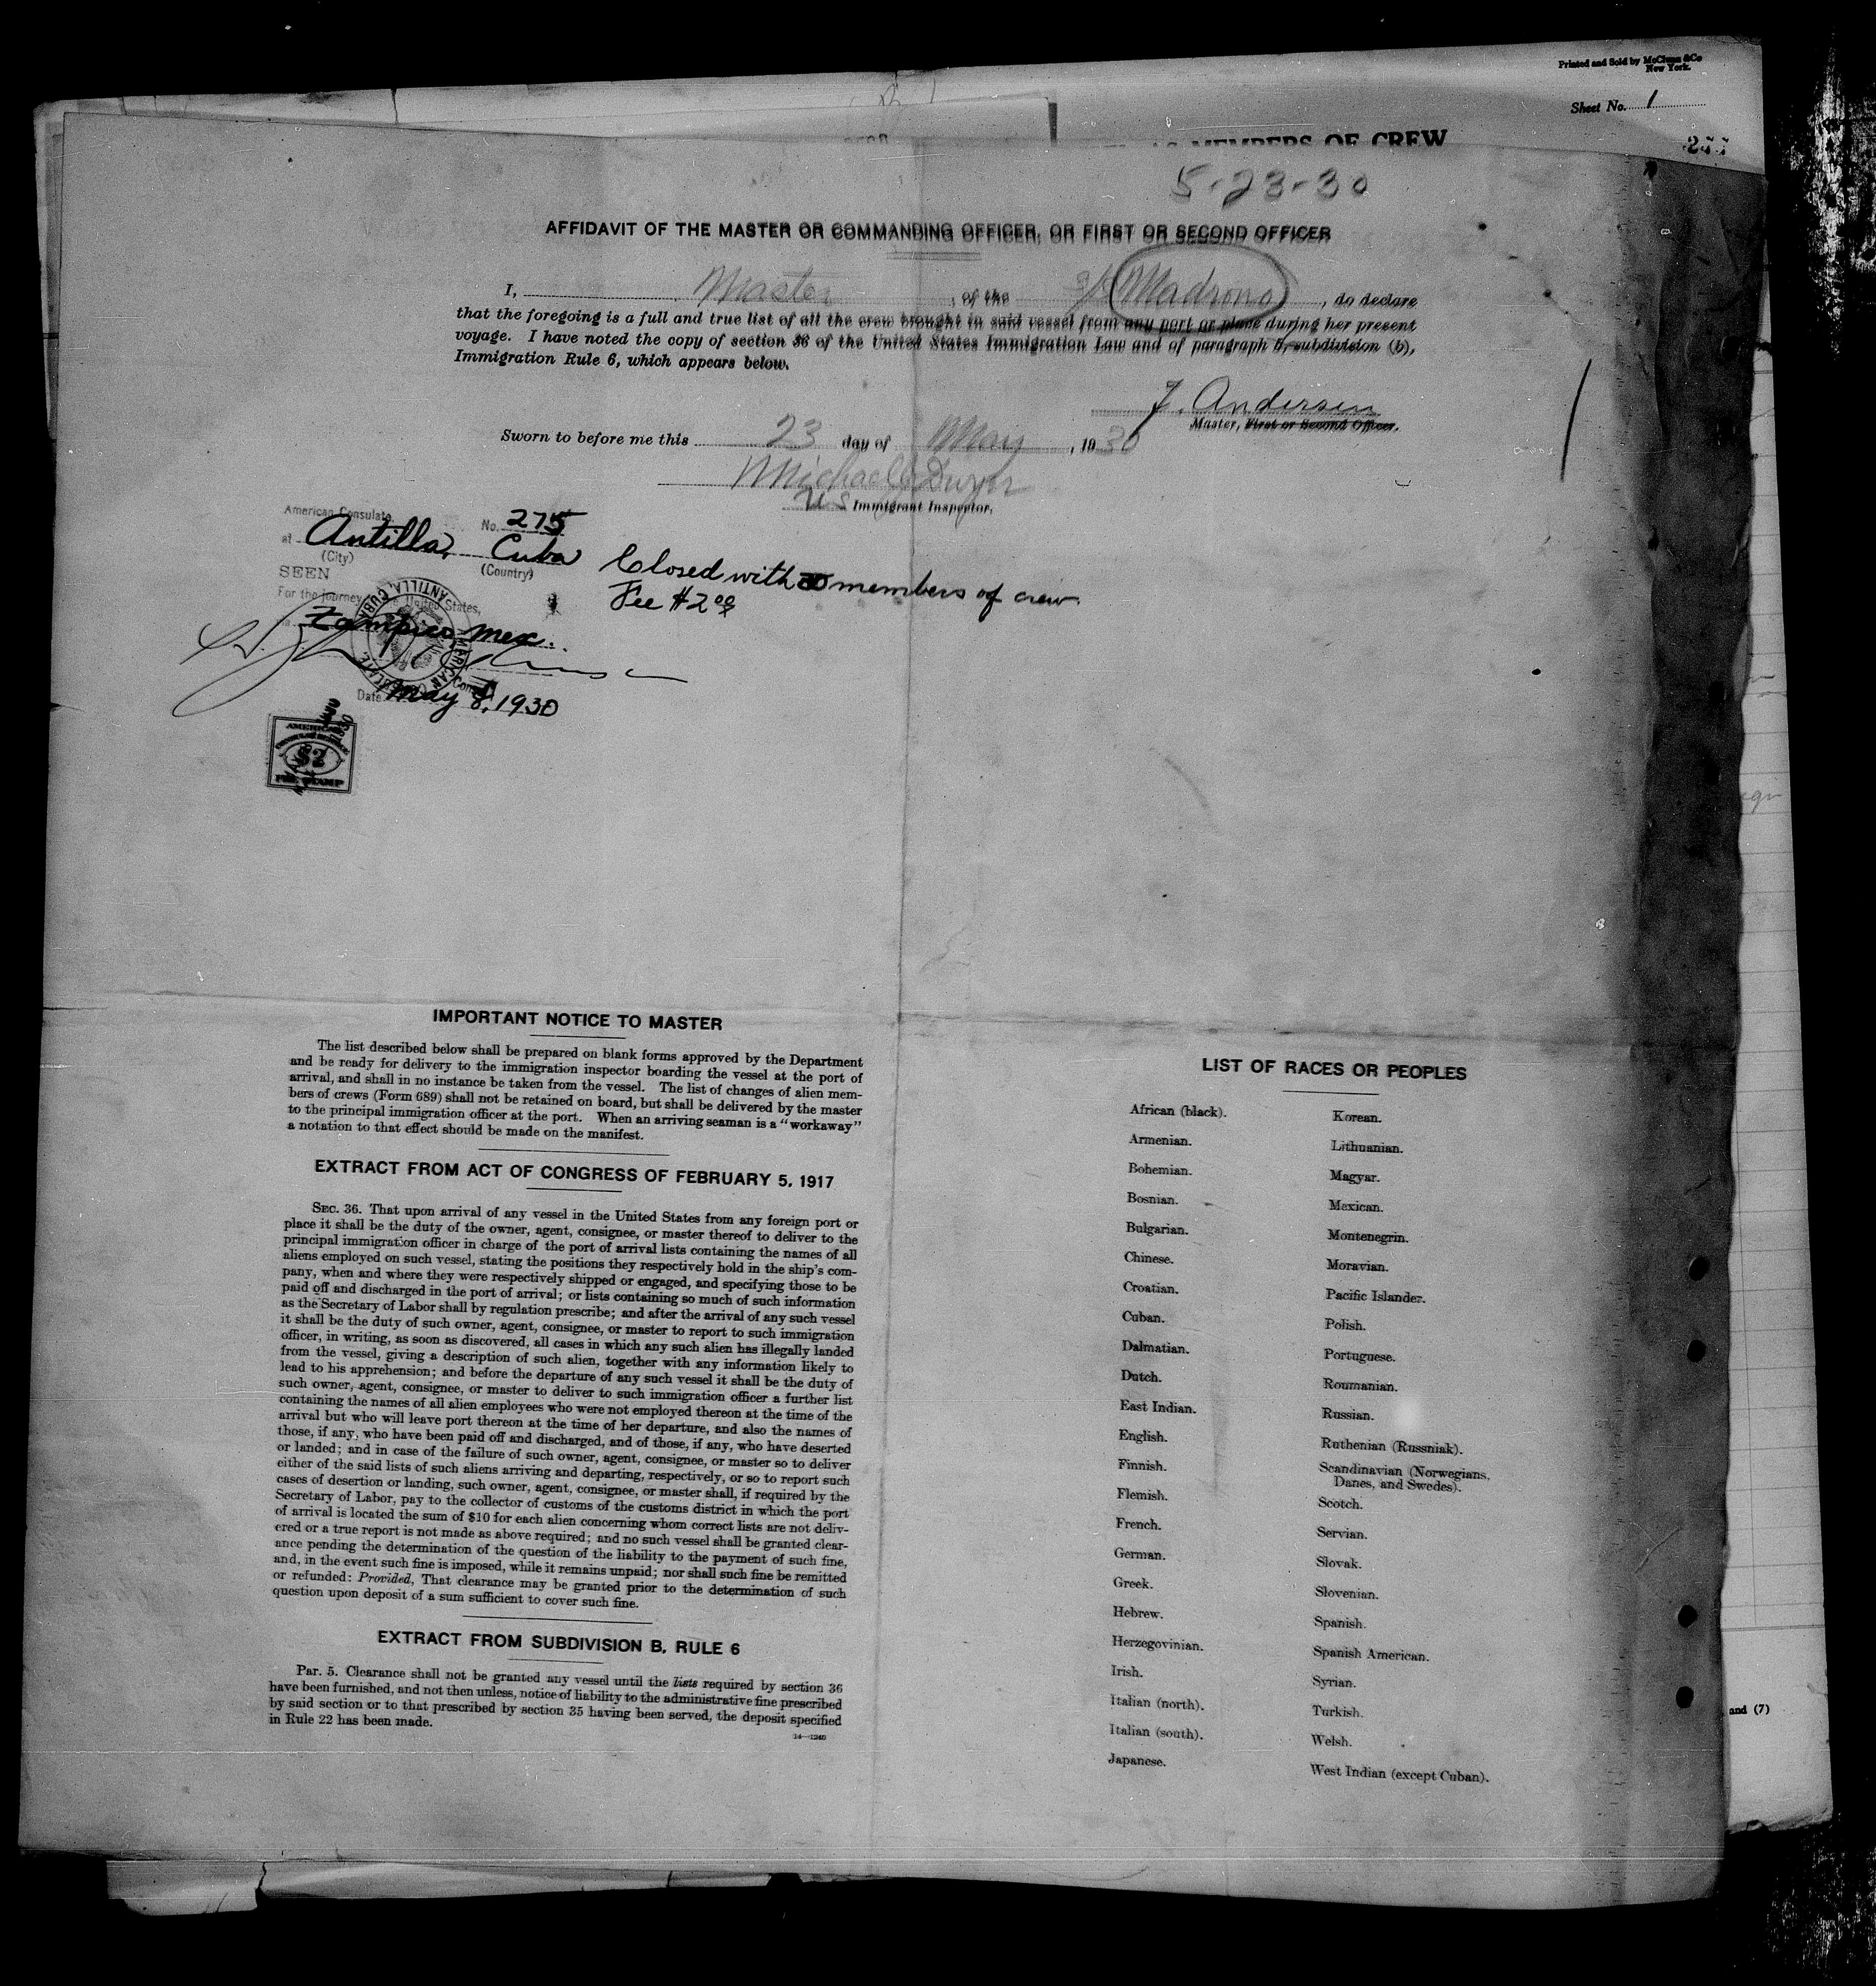 Printed and Sold by McClunn & Co
New York.
Sheet No. 1
MEMBERS OF CREW
277
5-23-30
AFFIDAVIT OF THE MASTER OR COMMANDING OFFICER, OR FIRST OR SECOND OFFICER
I, Master, of the S/S Madrono, do declare
that the foregoing is a full and true list of all the crew brought in said vessel from any port or place during her present
voyage. I have noted the copy of section 36 of the United States Immigration Law and of paragraph 5, subdivision (b),
Immigration Rule 6, which appears below.
J. Andersen
Master, First or Second Officer.
Sworn to before me this 23 day of May, 1930
Michael Dwyer
U S Immigrant Inspector.
American Consulate
No. 275
at Antilla, Cuba
(City) (Country)
Closed with members of crew
Fee #2.00
SEEN
For the journey to the United States,
Tampico Mex.
AMERICAN CONSULATE
ANTILLA, CUBA
Consul
Date May 8, 1930
AMERICAN
$2
FEE STAMP
IMPORTANT NOTICE TO MASTER
The list described below shall be prepared on blank forms approved by the Department
and be ready for delivery to the immigration inspector boarding the vessel at the port of
arrival, and shall in no instance be taken from the vessel. The list of changes of alien mem-
bers of crews (Form 689) shall not be retained on board, but shall be delivered by the master
to the principal immigration officer at the port. When an arriving seaman is a "workaway"
a notation to that effect should be made on the manifest.
EXTRACT FROM ACT OF CONGRESS OF FEBRUARY 5, 1917
SEC. 36. That upon arrival of any vessel in the United States from any foreign port or
place it shall be the duty of the owner, agent, consignee, or master thereof to deliver to the
principal immigration officer in charge of the port of arrival lists containing the names of all
aliens employed on such vessel, stating the positions they respectively hold in the ship's com-
pany, when and where they were respectively shipped or engaged, and specifying those to be
paid off and discharged in the port of arrival; or lists containing so much of such information
as the Secretary of Labor shall by regulation prescribe; and after the arrival of any such vessel
it shall be the duty of such owner, agent, consignee, or master to report to such immigration
officer, in writing, as soon as discovered, all cases in which any such alien has illegally landed
from the vessel, giving a description of such alien, together with any information likely to
lead to his apprehension; and before the departure of any such vessel it shall be the duty of
such owner, agent, consignee, or master to deliver to such immigration officer a further list
containing the names of all alien employees who were not employed thereon at the time of the
arrival but who will leave port thereon at the time of her departure, and also the names of
those, if any, who have been paid off and discharged, and of those, if any, who have deserted
or landed; and in case of the failure of such owner, agent, consignee, or master so to deliver
either of the said lists of such aliens arriving and departing, respectively, or so to report such
cases of desertion or landing, such owner, agent, consignee, or master shall, if required by the
Secretary of Labor, pay to the collector of customs of the customs district in which the port
of arrival is located the sum of $10 for each alien concerning whom correct lists are not deliv-
ered or a true report is not made as above required; and no such vessel shall be granted clear-
ance pending the determination of the question of the liability to the payment of such fine,
and, in the event such fine is imposed, while it remains unpaid; nor shall such fine be remitted
or refunded: Provided, That clearance may be granted prior to the determination of such
question upon deposit of a sum sufficient to cover such fine.
EXTRACT FROM SUBDIVISION B, RULE 6
Par. 5. Clearance shall not be granted any vessel until the lists required by section 36
have been furnished, and not then unless, notice of liability to the administrative fine prescribed
by said section or to that prescribed by section 35 having been served, the deposit specified
in Rule 22 has been made.
14—1240
LIST OF RACES OR PEOPLES
African (black).
Armenian.
Bohemian.
Bosnian.
Bulgarian.
Chinese.
Croatian.
Cuban.
Dalmatian.
Dutch.
East Indian.
English.
Finnish.
Flemish.
French.
German.
Greek.
Hebrew.
Herzegovinian.
Irish.
Italian (north).
Italian (south).
Japanese.
Korean.
Lithuanian.
Magyar.
Mexican.
Montenegrin.
Moravian.
Pacific Islander.
Polish.
Portuguese.
Roumanian.
Russian.
Ruthenian (Russniak).
Scandinavian (Norwegians,
Danes, and Swedes).
Scotch.
Servian.
Slovak.
Slovenian.
Spanish.
Spanish American.
Syrian.
Turkish.
Welsh.
West Indian (except Cuban).
and (7)